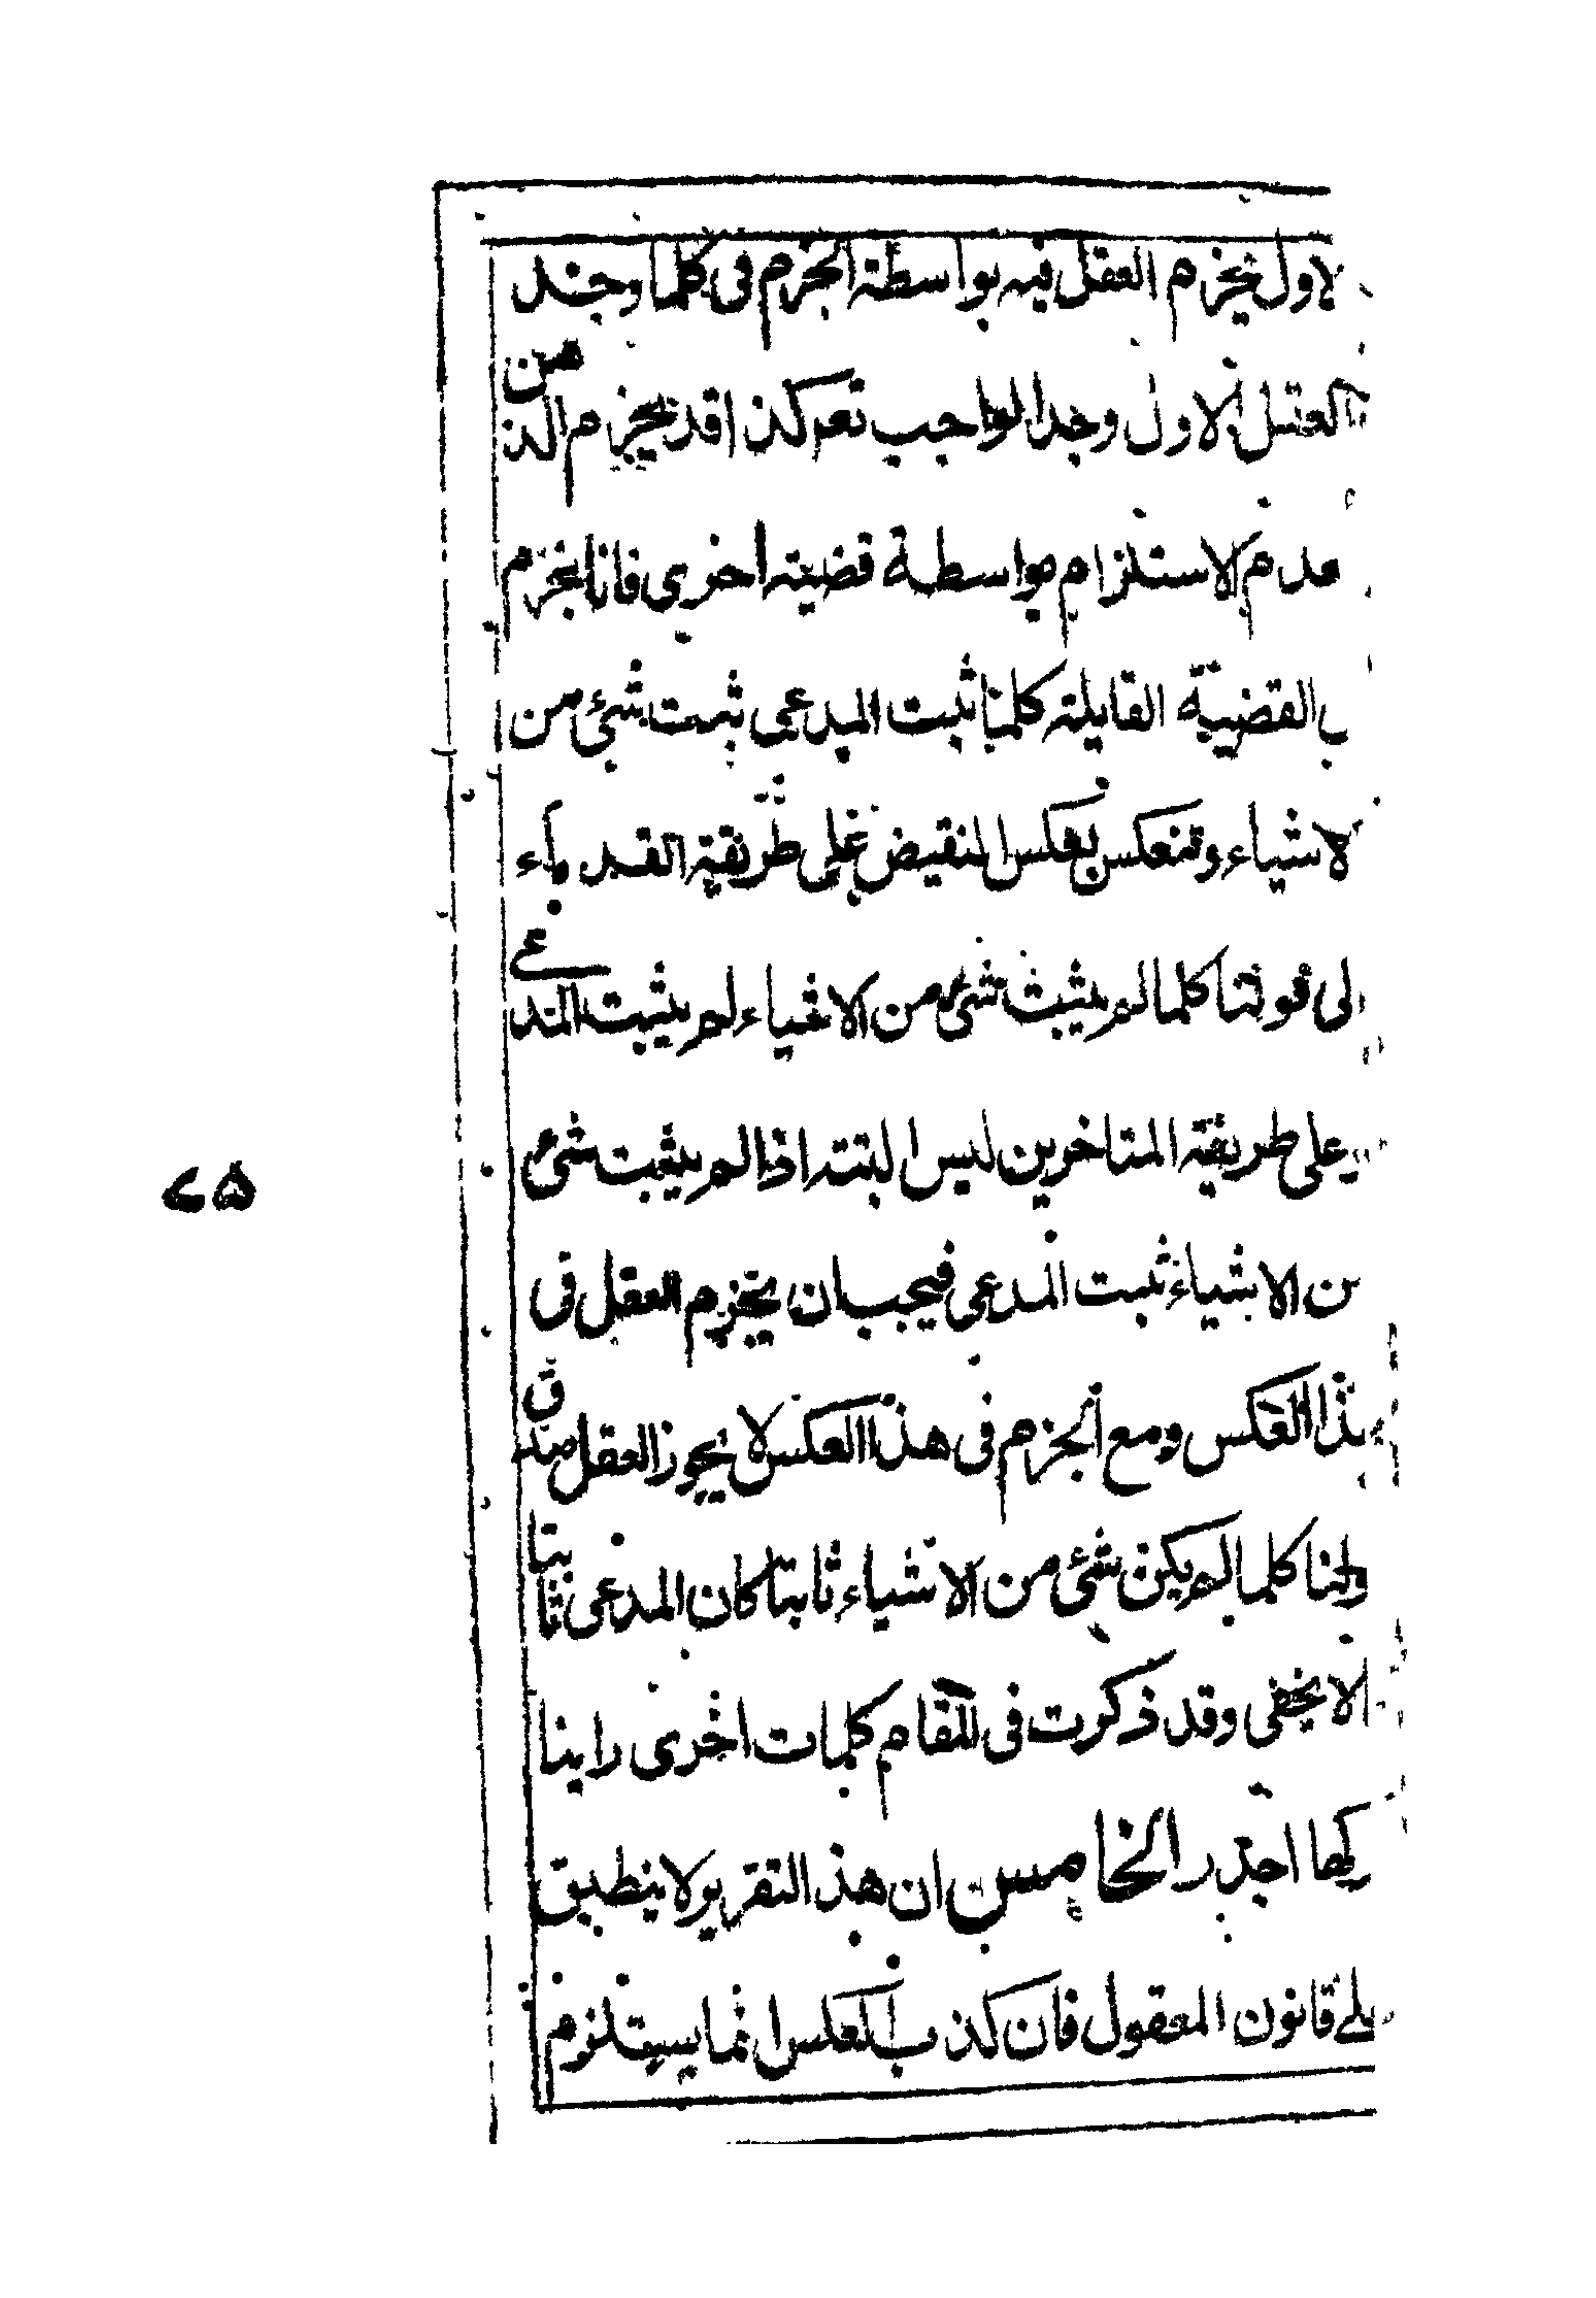 لاول يجزم العقل فيه بواسطة الجزم فى كلما وجد
العقل الاول وجد الواجب تعر كذا قد يجزم الذهن
عدم الاستلزام بواسطة قضية اخرى فانا نجزم
ب القضية القايلة كلما ثبت المدعى ثبت شئ من
لاشياء وتنعكس بعكس النقيض على طريقة القدماء
لى قولنا كلما لم يثبت شئ من الاشياء لم يثبت المدعى
على طريقة المتاخرين ليس البتة اذا لم يثبت شئ
ن الاشياء ثبت المدعى فيجب ان يجزم العقل فى
هذا العكس ومع الجزم فى هذا العكس لا يجوز العقل صدق
ولنا كلما لم يكن شئ من الاشياء ثابتا كان المدعى ثابتا
لا يخفى وقد ذكرت فى المقام كلمات اخرى راينا
ركها اجدر الخامس ان هذا التقرير لا ينطبق
على قانون المعقول فان كذب العكس انما يستلزم
۲۵